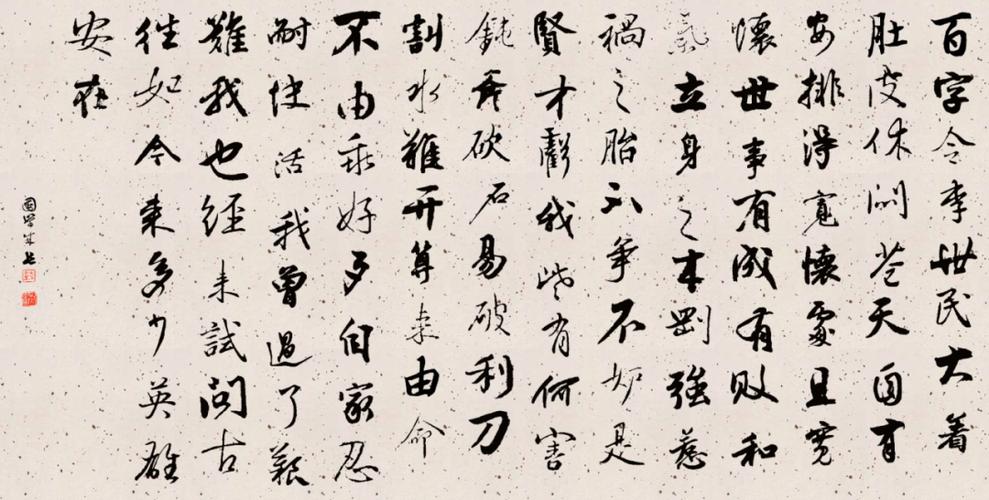 百字令李世民大着
肚皮休問蒼天自有
安排得寬懷處且寬
懷世事有成有敗和
氣立身之本剛強惹
禍之胎不爭不妒是
賢才虧我些有何害
鈍斧砍石易破利刀
割水難開算來由命
不由乖好歹自家忍
耐快活我曾過了艱
難我也經來試問古
往如今來多少英雄
安在